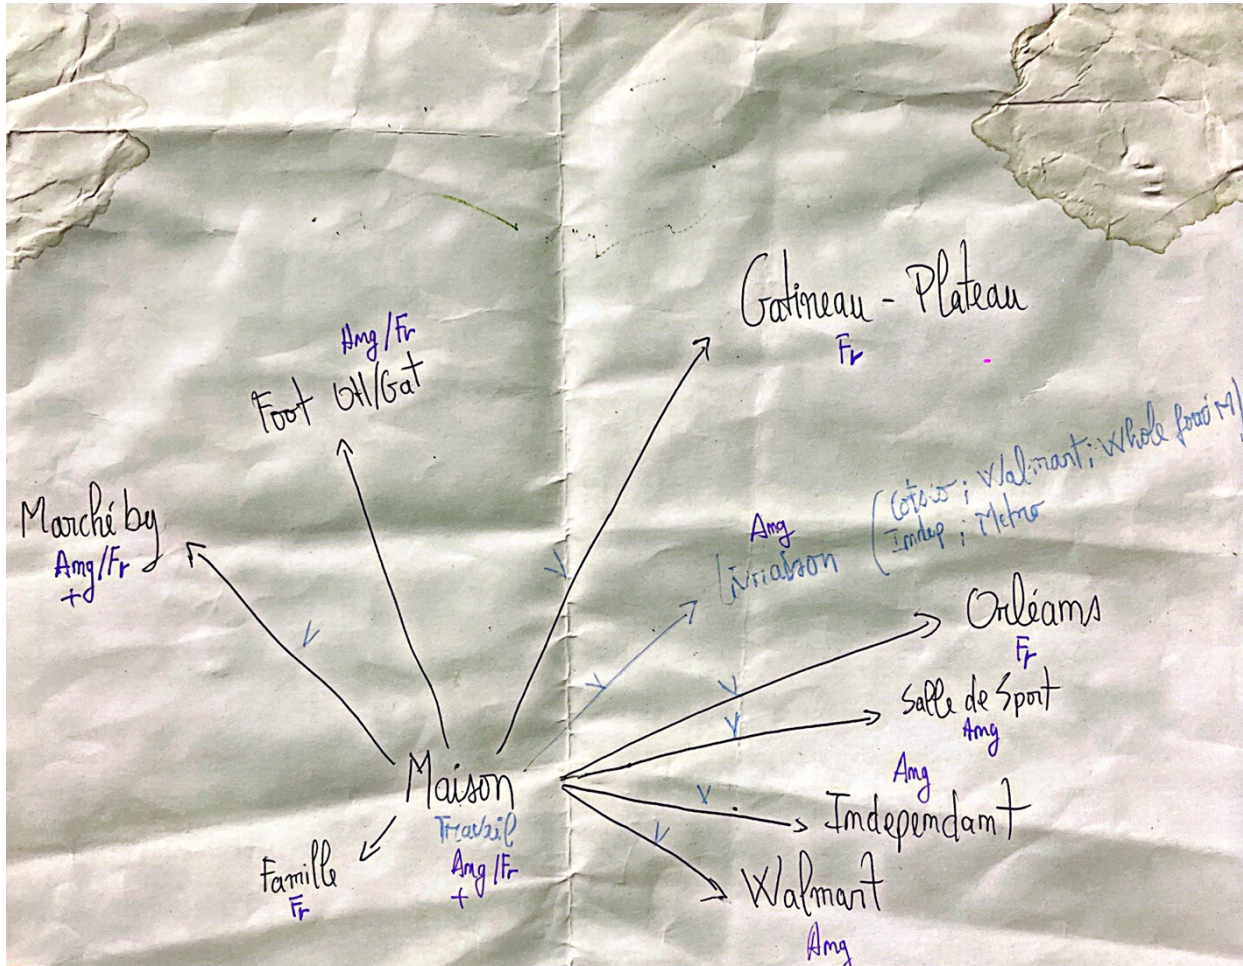 Gatineau - Plateau
Fr
Ang/Fr
Foot Ott/Gat
Marché by
Ang/Fr
+
V
V
Ang
Livriaison
(Cotsio ; Walmart ; Whole food M)
Indep ; Metro
V
Orléans
Fr
V
Salle de Sport
Ang
V
Ang
Independant
V
V
Walmart
Ang
Maison
Travail
Ang/Fr
+
Famille
Fr